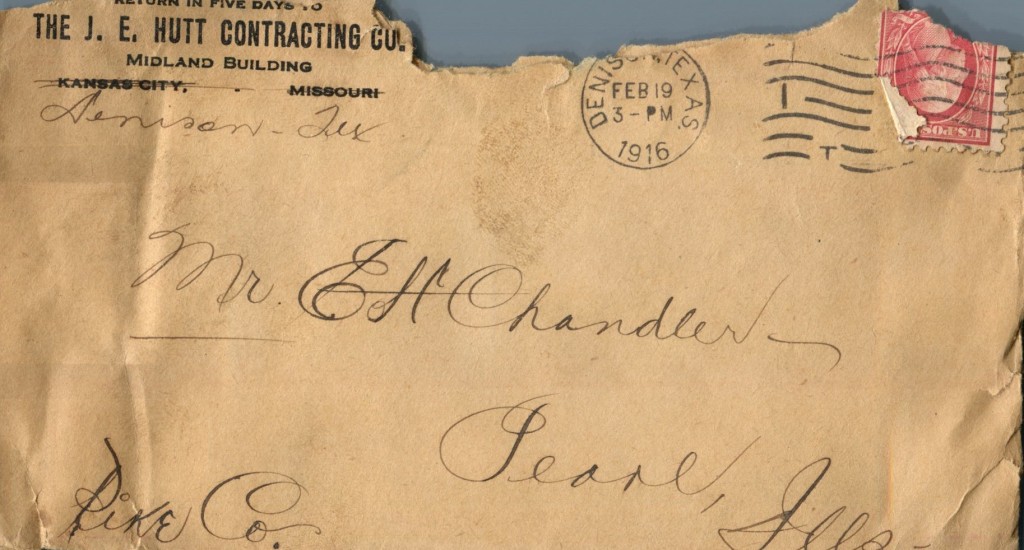 RETURN IN FIVE DAYS TO
THE J. E. HUTT CONTRACTING CO.
MIDLAND BUILDING
KANSAS CITY, MISSOURI
Denison - Tex
DENISON, TEXAS.
FEB 19
3 - PM
1916
T
U.S. POS
Mr. E H Chandler -
Pearl,
Pike Co. Ills -